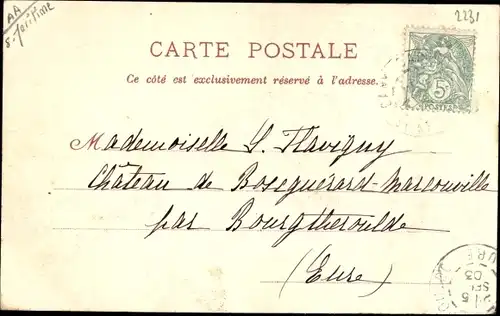 AA
2231
CARTE POSTALE
Ce côté est exclusivement réservé à l'adresse.
5c
POSTES
Mademoiselle S. Flavigny
Château de Bosguérard-Marcouville
par Bourgtheroulde
(Eure)
EURE
5
SEPT
03